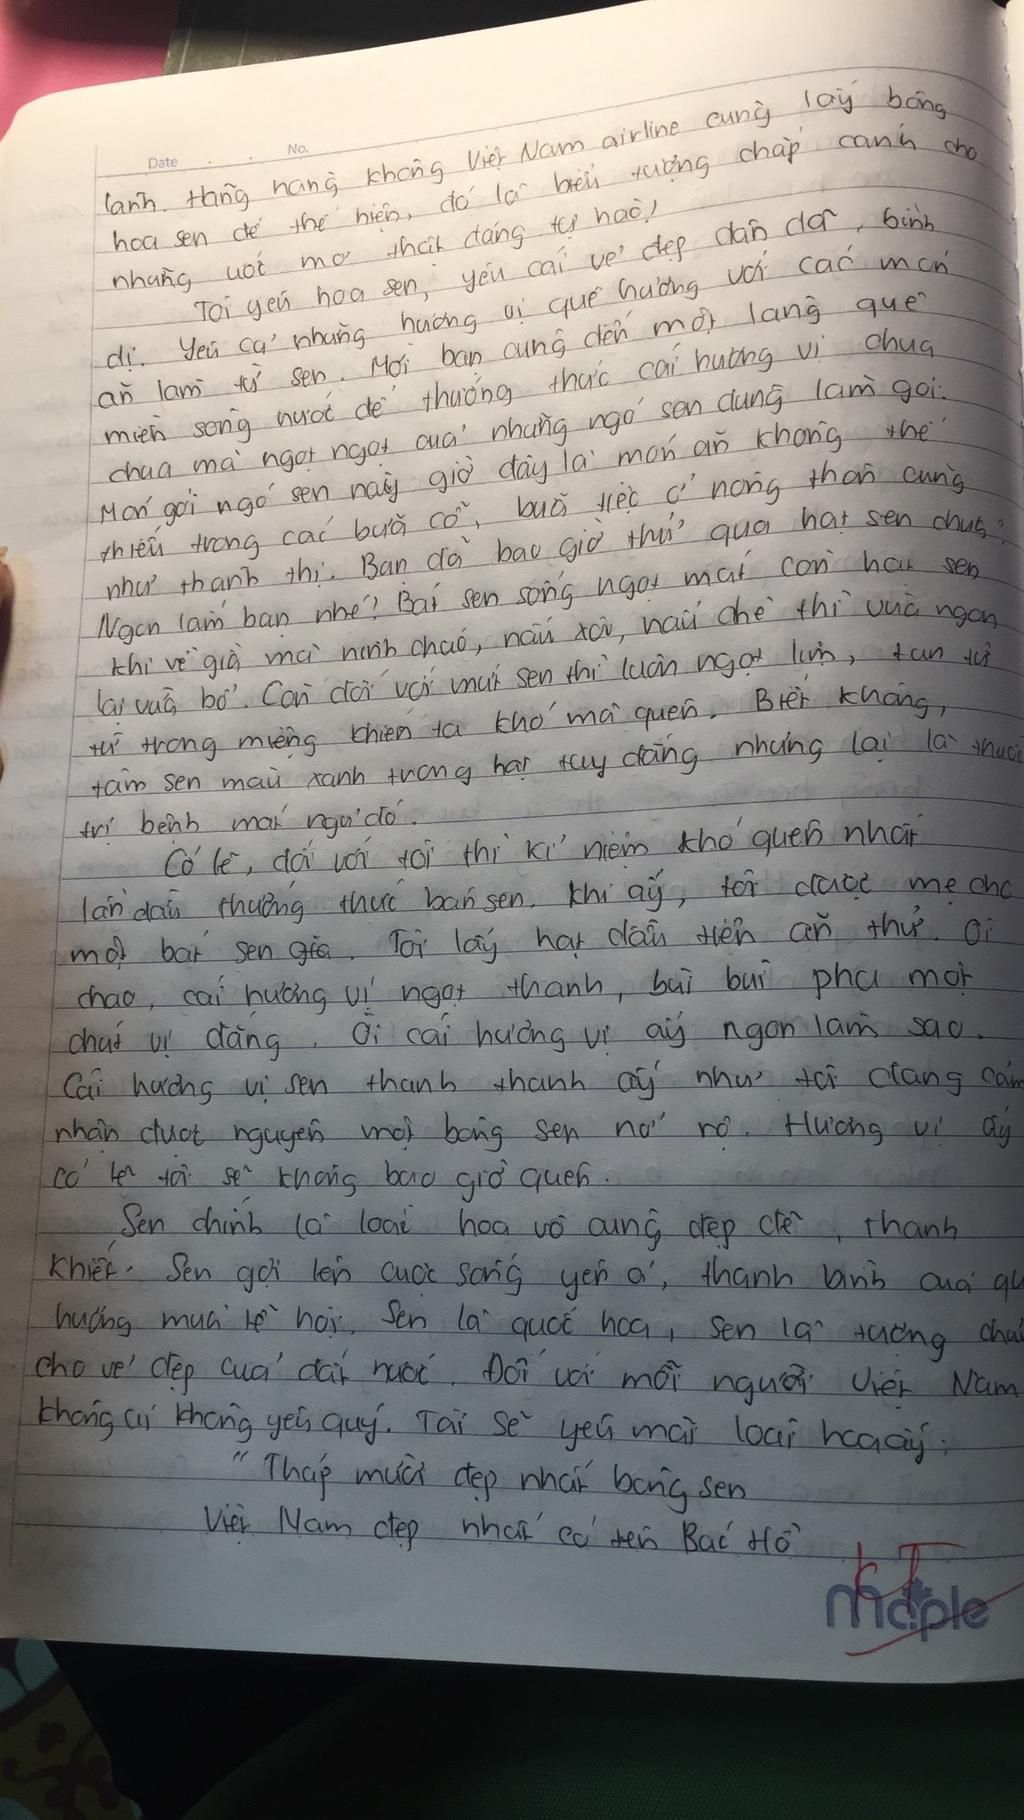 Date . . No.
lành. Hãng hàng không Việt Nam airline cũng lấy bông
hoa sen để thể hiện, đó là biểu tượng chắp cánh cho
những ước mơ thật đáng tự hào!
Tôi yêu hoa sen, yêu cái vẻ đẹp dân dã, bình
dị. Yêu cả những hương vị quê hương với các món
ăn làm từ sen. Mời bạn cùng đến một làng quê
miền sông nước để thưởng thức cái hương vị chua
chua mà ngọt ngọt của những ngó sen dùng làm gỏi.
Món gỏi ngó sen này giờ đây là món ăn không thể
thiếu trong các bữa cỗ, buổi tiệc ở nông thôn cũng
như thành thị. Bạn đã bao giờ thử qua hạt sen chưa?
Ngon lắm bạn nhé! Bát sen sống ngọt mát còn hạt sen
khi về già mà ninh cháo, nấu xôi, nấu chè thì vừa ngon
lại vừa bổ. Còn đối với mứt sen thì luôn ngọt lịm, tan từ
từ trong miệng khiến ta khó mà quên. Biết không,
tâm sen màu xanh trong hạt tuy đắng nhưng lại là thuốc
trị bệnh mất ngủ đó.
Có lẽ, đối với tôi thì kỉ niệm khó quên nhất
lần đầu thưởng thức bán sen. Khi ấy, tôi được mẹ cho
một bát sen già. Tôi lấy hạt đầu tiên ăn thử. Ôi
chao, cái hương vị ngọt thanh, bùi bùi pha một
chút vị đắng. Ôi cái hương vị ấy ngon làm sao.
Cái hương vị sen thanh thanh ấy như tôi đang cảm
nhận được nguyên một bông sen nở rộ. Hương vị ấy
có lẽ tôi sẽ không bao giờ quên.
Sen chính là loài hoa vô cùng đẹp đẽ, thanh
khiết. Sen gợi lên cuộc sống yên ả, thanh bình của qu
hương mùa lễ hội. Sen là quốc hoa, sen là tượng
cho vẻ đẹp của đất nước. Đối với mỗi người Việt Nam
không ai không yêu quý. Tôi sẽ yêu mãi loài hoa ấy:
"Tháp mười đẹp nhất bông sen
Việt Nam đẹp nhất có tên Bác Hồ
KT
maple